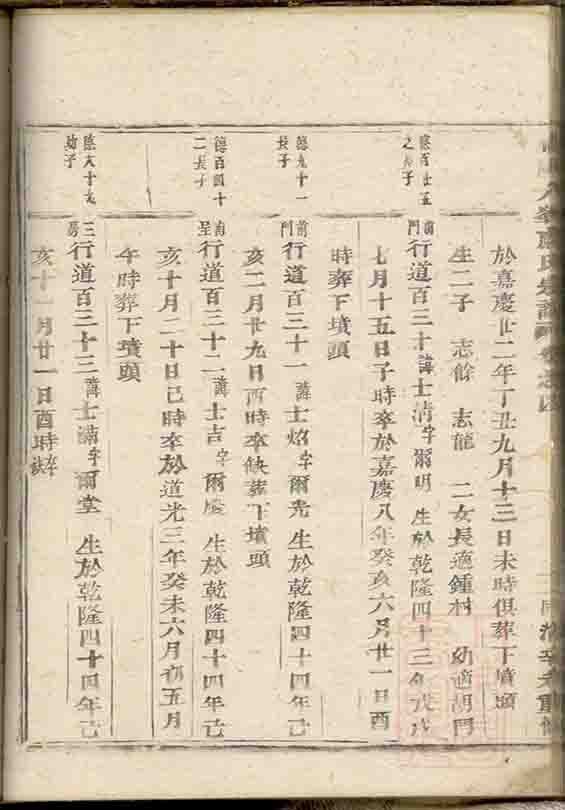 於嘉慶廿二年丁丑九月十三日未時俱葬下墳頭
生二子 志餘 志龍 二女長適鍾村 幼適胡門
德百廿五之次子
前門行道百三十諱士清字爾明 生於乾隆四十三年戊戌
七月十五日子時卒於嘉慶八年癸亥六月廿一日酉
時葬下墳頭
德九十一長子
前門行道百三十一諱士焰字爾光 生於乾隆四十四年己
亥二月廿九日酉時卒缺葬下墳頭
德百四十二長子
南呈行道百三十二諱士吉字爾慶 生於乾隆四十四年己
亥十月二十日巳時卒於道光三年癸未六月初五月
午時葬下墳頭
德六十九幼子
三房行道百三十三諱士滿字爾堂 生於乾隆四十四年己
亥十一月廿一日酉時卒缺